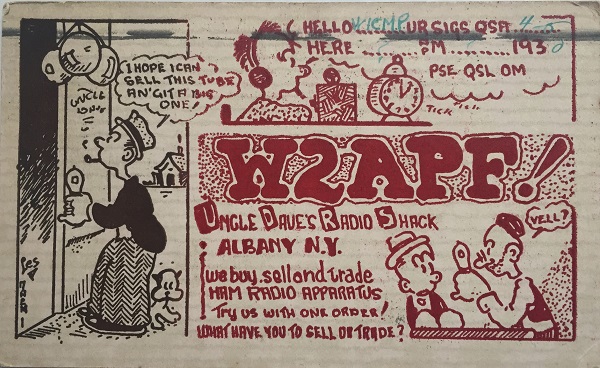 HELLO W1CMP UR SIGS QSA 4-5
HERE ........ SM ........ 193
PSE QSL OM
TICK TICK
I HOPE I CAN
SELL THIS TUBE
AN' GIT A BIG
ONE!
UNCLE
DAVE
W2APF!
UNCLE DAVE'S RADIO SHACK
ALBANY N.Y.
We buy, sell and trade
HAM RADIO APPARATUS
TRY US WITH ONE ORDER!
WHAT HAVE YOU TO SELL OR TRADE?
VELL?